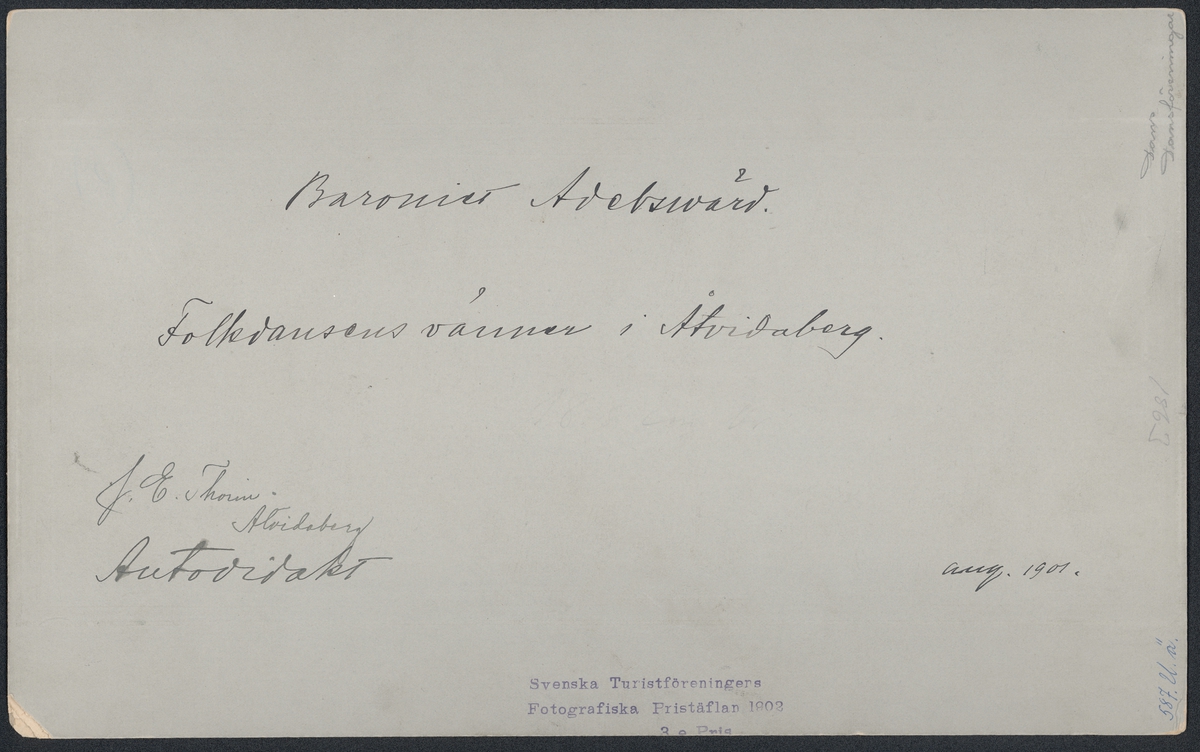 Baroniet Adelswärd.
Folkdansens vänner i Åtvidaberg.
J. E. Thorin.
Åtvidaberg
Autodidakt
aug. 1901.
Svenska Turistföreningens
Fotografiska Pristäflan 1902
3 e Pris
Dans
Dansföreningar
587. U. ä.